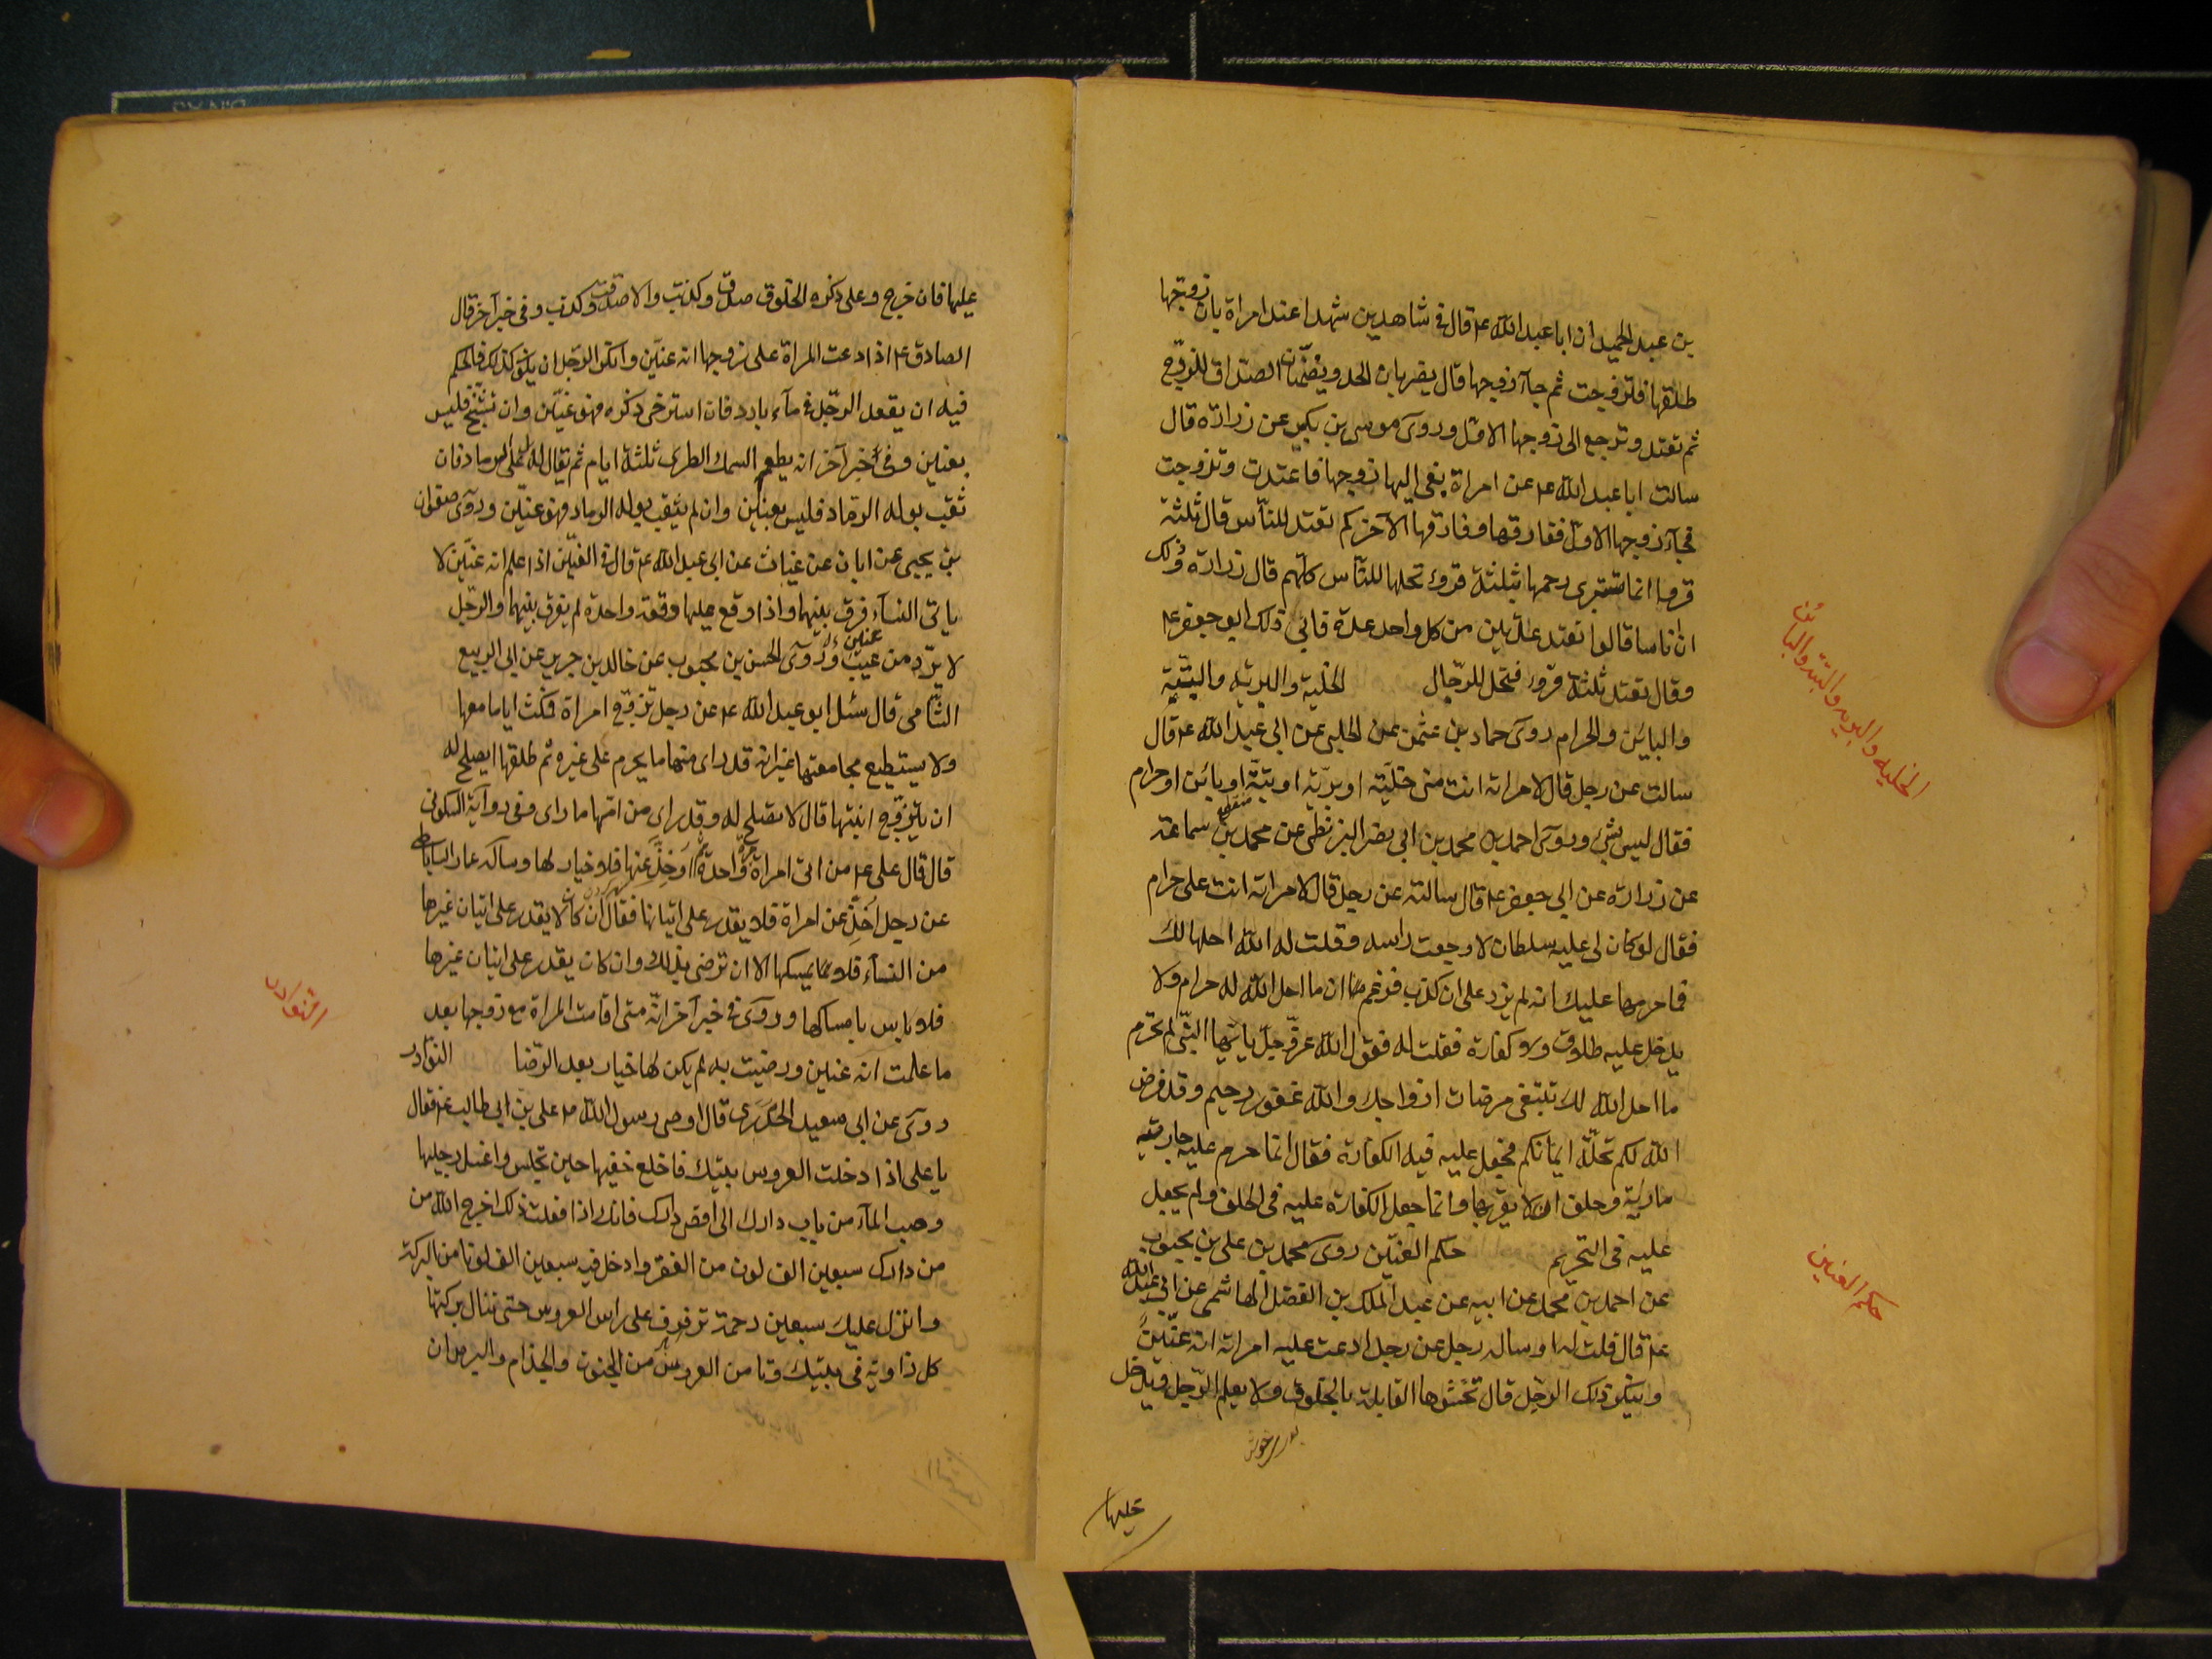 بن عبد الحميد ان ابا عبد الله ع قال فى شاهدين شهدا عند امراة بان زوجها
طلقها فتزوجت ثم جآء زوجها قال يضربان الحد ويضمنان الصداق للزوج
ثم تعتد وترجع الى زوجها الاول وروى موسى بن بكير عن زرارة قال
سالت ابا عبد الله ع عن امراة نعى اليها زوجها فاعتدت وتزوجت
فجآء زوجها الاول ففارقها وفارقها الآخر كم تعتد للناس قال ثلثة
قروء انما تستبرى رحمها بثلثة قروء تحلها للناس كلهم قال زرارة وذلك
ان ناسا قالوا تعتد عدتين من كل واحد عدة فابى ذلك ابو جعفر ع
وقال تعتد ثلثة قروء فتحل للرجال الخلية والبرية والبتة
الخليه والبريه والبته والبائن
والباين والحرام روى حماد بن عثمن عن الحلبى عن ابى عبد الله ع قال
سالت عن رجل قال لامراته انت منى خلية او برية او بتة او باين او حرام
فقال ليس بشئ وروى احمد بن محمد بن ابى نصر البزنطى عن محمد بن سماعة
عن زرارة عن ابى جعفر ع قال سالته عن رجل قال لامراته انت على حرام
فقال لو كان لى عليه سلطان لاوجعت راسه وقلت له الله احلها لك
فما حرمها عليك انه لم يزد على ان كذب فزعم ان ما احل الله له حرام ولا
يدخل عليه طلاق ولا كفارة فقلت له فقول الله عز وجل يا ايها النبى لم تحرم
ما احل الله لك تبتغى مرضات ازواجك والله غفور رحيم وقد فرض
الله لكم تحلة ايمانكم فجعل عليه فيه الكفارة فقال انما حرم عليه جاريته
مارية وحلف ان لا يقربها وانما جعل الكفارة عليه فى الحلف ولم يجعل
عليه فى التحريم حكم العنين روى محمد بن على بن محبوب
حكم العنين
عن احمد بن محمد عن ابيه عن عبد الملك بن الفضل الهاشمى عن ابى عبد الله
ع قال قلت له او ساله رجل عن رجل ادعت عليه امراته انه عنين
وينكر ذلك الرجل قال تحشوها القابلة بالخلوق ولا يعلم الرجل ويدخل
عليها
عليها فان خرج وعلى ذكره الخلوق صدق وكذبت والا صدقت وكذب وفى خبر آخر قال
الصادق ع اذا ادعت المراة على زوجها انه عنين وانكر الرجل ان يكون كذلك فالحكم
فيه ان يقعد الرجل فى مآء بارد فان استرخى ذكره فهو عنين وان تشنج فليس
بعنين وفى خبر آخر انه يطعم السمك الطرى ثلثة ايام ثم يقال له بل على الرماد فان
ثقب بوله الرماد فليس بعنين وان لم يثقب بوله الرماد فهو عنين وروى صفوان
بن يحيى عن ابان عن غياث عن ابى عبد الله ع قال فى العنين اذا علم انه عنين لا
ياتى النسآء فرق بينهما واذا وقع عليها وقعة واحدة لم يفرق بينهما والرجل
لا يرد من عيب وروى الحسن بن محبوب عن خالد بن جرير عن ابى الربيع
الشامى قال سئل ابو عبد الله ع عن رجل تزوج امراة فمكث اياما معها
ولا يستطيع مجامعتها غير انه قد راى منها ما يحرم على غيره ثم طلقها ايصلح له
ان يتزوج ابنتها قال لا تصلح له وقد راى من امها ما راى وفى رواية السكونى
قال قال على ع من اتى امراة مرة واحدة ثم اخذ عنها فلا خيار لها وساله عمار الساباطى
عن رجل اخذ عن امراة فلا يقدر على اتيانها فقال ان كان لا يقدر على اتيان غيرها
من النسآء فلا يمسكها الا ان ترضى بذلك وان كان يقدر على اتيان غيرها
فلا باس بامساكها وروى فى خبر آخر انه متى اقامت المراة مع زوجها بعد
ما علمت انه عنين ورضيت به لم يكن لها خيار بعد الرضا النوادر
النوادر
روى عن ابى سعيد الخدرى قال اوصى رسول الله ص على بن ابى طالب ع فقال
يا على اذا دخلت العروس بيتك فاخلع خفيها حين تجلس واغسل رجليها
وصب المآء من باب دارك الى اقصى دارك فانك اذا فعلت ذلك اخرج الله من
من دارك سبعين الف لون من الفقر وادخل فيه سبعين الف لونا من البركة
وانزل عليك سبعين رحمة ترفرف على راس العروس حتى تنال بركتها
كل زاوية فى بيتك وتامن العروس من الجنون والجذام والبرص ان